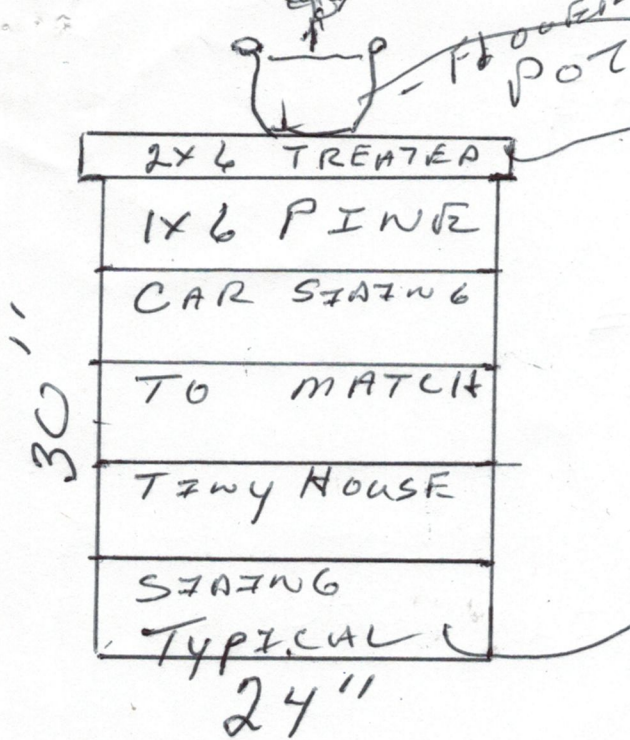 FLOWER
POT
2X6 TREATED
1X6 PINE
CAR SIDING
TO MATCH
TINY HOUSE
SIDING
TYPICAL
30"
24"